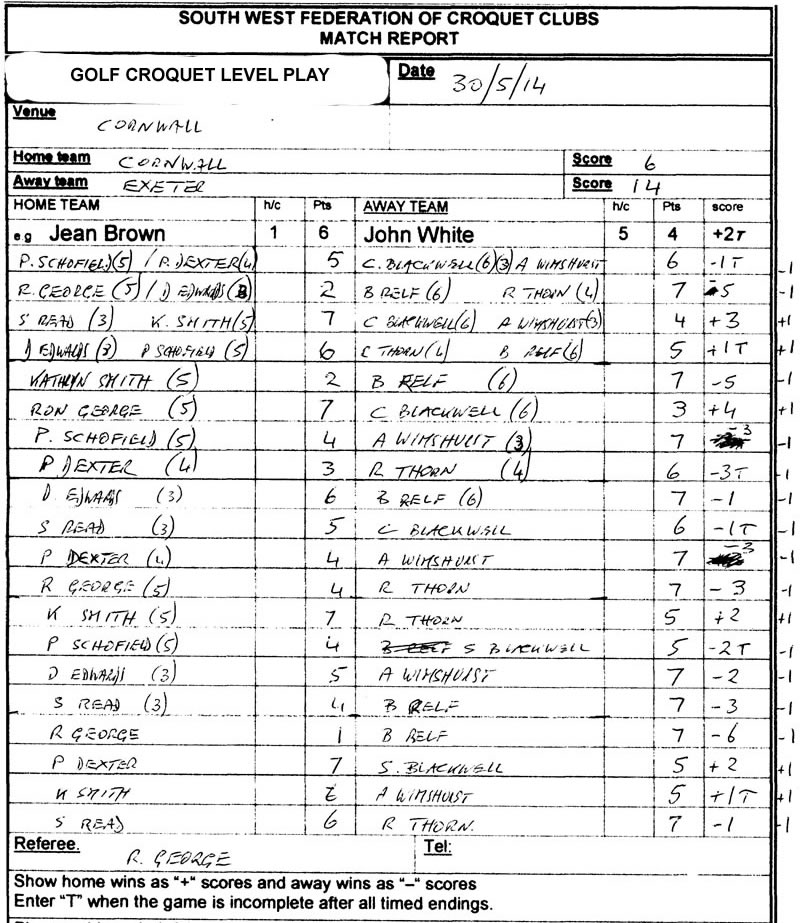 SOUTH WEST FEDERATION OF CROQUET CLUBS
MATCH REPORT
GOLF CROQUET LEVEL PLAY Date 30/5/14
Venue
CORNWALL
Home team CORNWALL Score 6
Away team EXETER Score 14
HOME TEAM h/c Pts AWAY TEAM h/c Pts score
e g Jean Brown 1 6 John White 5 4 +2T
P. SCHOFIELD(5) / P. DEXTER(4) 5 C. BLACKWELL(6)(3) A WIMSHURST 6 -1T -1
R. GEORGE (5) / D EDWARDS (3) 2 B RELF (6) R THORN (4) 7 -5 -1
S READ (3) K. SMITH(5) 7 C BLACKWELL(6) A WIMSHURST(3) 4 +3 +1
D EDWARDS (3) P SCHOFIELD (5) 6 THORN (4) B RELF(6) 5 +1T +1
KATHRYN SMITH (5) 2 B RELF (6) 7 -5 -1
RON GEORGE (5) 7 C BLACKWELL (6) 3 +4 +1
P. SCHOFIELD (5) 4 A WIMSHURST (3) 7 -3 -1
P DEXTER (4) 3 R THORN (4) 6 -3T -1
D EDWARDS (3) 6 B RELF (6) 7 -1 -1
S READ (3) 5 C BLACKWELL 6 -1T -1
P DEXTER (4) 4 A WIMSHURST 7 -3 -1
R GEORGE (5) 4 R THORN 7 -3 -1
K SMITH (5) 7 R THORN 5 +2 +1
P SCHOFIELD (5) 4 B RELF S BLACKWELL 5 -2T -1
D EDWARDS (3) 5 A WIMSHURST 7 -2 -1
S READ (3) 4 B RELF 7 -3 -1
R GEORGE 1 B RELF 7 -6 -1
P DEXTER 7 S. BLACKWELL 5 +2 +1
K SMITH 6 A WIMSHURST 5 +1T +1
S READ 6 R THORN. 7 -1 -1
Referee. R. GEORGE Tel:
Show home wins as "+" scores and away wins as "–" scores
Enter "T" when the game is incomplete after all timed endings.